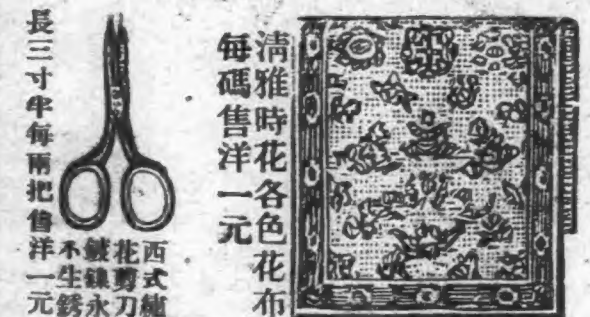 清雅時花各色花布
每碼售洋一元
西式繡
花剪刀
鍍鎳永
不生銹
長三寸半每兩把售洋一元